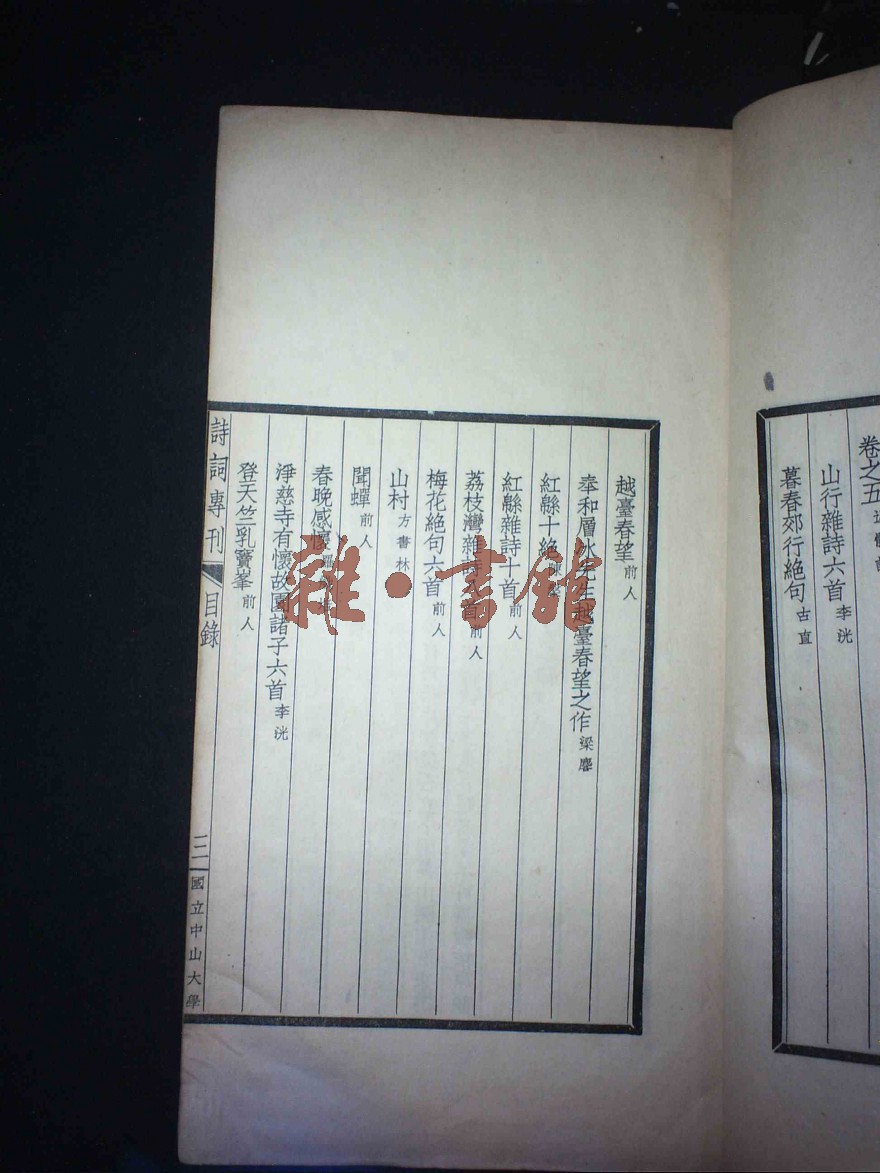 卷之五
山行雜詩六首 李洸
暮春郊行絶句 古直
越臺春望 前人
奉和層冰先生越臺春望之作 梁麐
紅緜十絶
紅緜雜詩十首 前人
荔枝灣雜詩 首 前人
梅花絶句六首 前人
山村 方書林
聞蟬 前人
春晚感懷
淨慈寺有懷故園諸子六首 李洸
登天竺乳竇峯 前人
詩詞專刊 目錄 三 國立中山大學
雜·書館